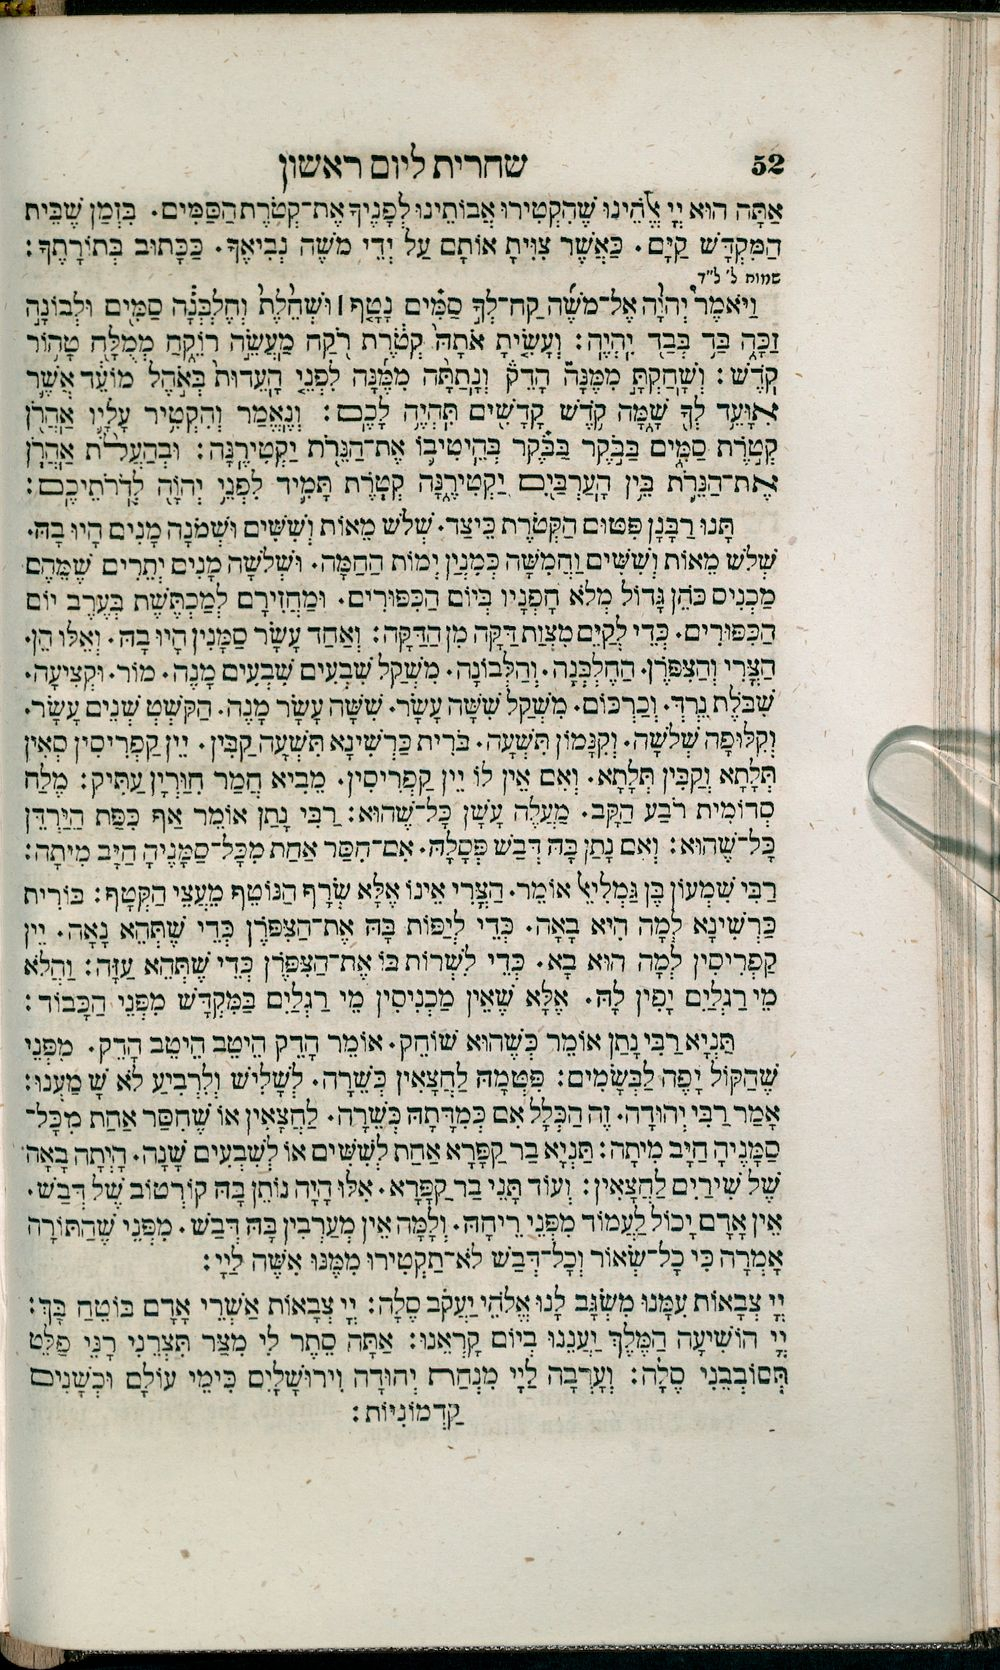 52
שחרית ליום ראשון
אַתָּה הוּא יְיָ אֱלֹהֵינוּ שֶׁהִקְטִירוּ אֲבוֹתֵינוּ לְפָנֶיךָ אֶת־קְטֹרֶת הַסַּמִּים. בִּזְמַן שֶׁבֵּית
הַמִּקְדָּשׁ קַיָּם. כַּאֲשֶׁר צִוִּיתָ אוֹתָם עַל יְדֵי מֹשֶׁה נְבִיאֶךָ. כַּכָּתוּב בְּתוֹרָתֶךָ:
שמות ל׳ ל״ד
וַיֹּאמֶר יְהוָֹה אֶל־מֹשֶׁה קַח־לְךָ סַמִּים נָטָף ׀ וּשְׁחֵלֶת וְחֶלְבְּנָה סַמִּים וּלְבוֹנָה
זַכָּה בַּד בְּבַד יִהְיֶה: וְעָשִׂיתָ אֹתָהּ קְטֹרֶת רֹקַח מַעֲשֵׂה רוֹקֵחַ מְמֻלָּח טָהוֹר
קֹדֶשׁ: וְשָׁחַקְתָּ מִמֶּנָּה הָדֵק וְנָתַתָּה מִמֶּנָּה לִפְנֵי הָעֵדוּת בְּאֹהֶל מוֹעֵד אֲשֶׁר
אִוָּעֵד לְךָ שָׁמָּה קֹדֶשׁ קָדָשִׁים תִּהְיֶה לָכֶם: וְנֶאֱמַר וְהִקְטִיר עָלָיו אַהֲרֹן
קְטֹרֶת סַמִּים בַּבֹּקֶר בַּבֹּקֶר בְּהֵיטִיבוֹ אֶת־הַנֵּרֹת יַקְטִירֶנָּה: וּבְהַעֲלֹת אַהֲרֹן
אֶת־הַנֵּרֹת בֵּין הָעַרְבַּיִם יַקְטִירֶנָּה קְטֹרֶת תָּמִיד לִפְנֵי יְהוָֹה לְדֹרֹתֵיכֶם:
תָּנוּ רַבָּנָן פִּטּוּם הַקְּטֹרֶת כֵּיצַד. שְׁלֹשׁ מֵאוֹת וְשִׁשִּׁים וּשְׁמֹנָה מָנִים הָיוּ בָהּ.
שְׁלֹשׁ מֵאוֹת וְשִׁשִּׁים וַחֲמִשָּׁה כְּמִנְיַן יְמוֹת הַחַמָּה. וּשְׁלֹשָׁה מָנִים יְתֵרִים שֶׁמֵּהֶם
מַכְנִיס כֹּהֵן גָּדוֹל מְלֹא חָפְנָיו בְּיוֹם הַכִּפּוּרִים. וּמַחֲזִירָם לְמַכְתֶּשֶׁת בְּעֶרֶב יוֹם
הַכִּפּוּרִים. כְּדֵי לְקַיֵּם מִצְוַת דַּקָּה מִן הַדַּקָּה: וְאַחַד עָשָׂר סַמָּנִין הָיוּ בָהּ. וְאֵלּוּ הֵן.
הַצֳּרִי וְהַצִּפֹּרֶן. הַחֶלְבְּנָה. וְהַלְּבוֹנָה. מִשְׁקַל שִׁבְעִים שִׁבְעִים מָנֶה. מוֹר. וּקְצִיעָה.
שִׁבֹּלֶת נֵרְדְּ. וְכַרְכּוֹם. מִשְׁקַל שִׁשָּׁה עָשָׂר. שִׁשָּׁה עָשָׂר מָנֶה. הַקֹּשְׁטְ שְׁנֵים עָשָׂר.
וְקִלּוּפָה שְׁלֹשָׁה. וְקִנָּמוֹן תִּשְׁעָה. בֹּרִית כַּרְשִׁינָא תִּשְׁעָה קַבִּין. יֵין קַפְרִיסִין סְאִין
תְּלָתָא וְקַבִּין תְּלָתָא. וְאִם אֵין לוֹ יֵין קַפְרִיסִין. מֵבִיא חֲמַר חִוַּרְיָן עַתִּיק: מֶלַח
סְדוֹמִית רֹבַע הַקָּב. מַעֲלֶה עָשָׁן כָּל־שֶׁהוּא: רַבִּי נָתַן אוֹמֵר אַף כִּפַּת הַיַּרְדֵּן
כָּל־שֶׁהוּא: וְאִם נָתַן בָּהּ דְּבַשׁ פְּסָלָהּ. אִם־חִסַּר אַחַת מִכָּל־סַמָּנֶיהָ חַיָּב מִיתָה:
רַבִּי שִׁמְעוֹן בֶּן גַּמְלִיאֵל אוֹמֵר. הַצֳּרִי אֵינוֹ אֶלָּא שְׂרָף הַנּוֹטֵף מֵעֲצֵי הַקְּטָף: בּוֹרִית
כַּרְשִׁינָא לְמָה הִיא בָאָה. כְּדֵי לְיַפּוֹת בָּהּ אֶת־הַצִּפֹּרֶן כְּדֵי שֶׁתְּהֵא נָאָה. יֵין
קַפְרִיסִין לְמָה הוּא בָא. כְּדֵי לִשְׁרוֹת בּוֹ אֶת־הַצִּפֹּרֶן כְּדֵי שֶׁתְּהֵא עַזָּה: וַהֲלֹא
מֵי רַגְלַיִם יָפִין לָהּ. אֶלָּא שֶׁאֵין מַכְנִיסִין מֵי רַגְלַיִם בַּמִּקְדָּשׁ מִפְּנֵי הַכָּבוֹד:
תַּנְיָא רַבִּי נָתַן אוֹמֵר כְּשֶׁהוּא שׁוֹחֵק. אוֹמֵר הָדֵק הֵיטֵב הֵיטֵב הָדֵק. מִפְּנֵי
שֶׁהַקּוֹל יָפֶה לַבְּשָׂמִים: פִּטְּמָהּ לַחֲצָאִין כְּשֵׁרָה. לִשְׁלִישׁ וְלִרְבִיעַ לֹא שָׁמַעְנוּ:
אָמַר רַבִּי יְהוּדָה. זֶה הַכְּלָל אִם כְּמִדָּתָהּ כְּשֵׁרָה. לַחֲצָאִין אוֹ שֶׁחִסַּר אַחַת מִכָּל־
סַמָּנֶיהָ חַיָּב מִיתָה: תַּנְיָא בַר קַפָּרָא אַחַת לְשִׁשִּׁים אוֹ לְשִׁבְעִים שָׁנָה. הָיְתָה בָאָה
שֶׁל שִׁירַיִם לַחֲצָאִין: וְעוֹד תָּנֵי בַר קַפָּרָא. אִלּוּ הָיָה נוֹתֵן בָּהּ קוֹרְטוֹב שֶׁל דְּבַשׁ.
אֵין אָדָם יָכוֹל לַעֲמוֹד מִפְּנֵי רֵיחָהּ. וְלָמָּה אֵין מְעָרְבִין בָּהּ דְּבַשׁ. מִפְּנֵי שֶׁהַתּוֹרָה
אָמְרָה כִּי כָל־שְׂאוֹר וְכָל־דְּבַשׁ לֹא־תַקְטִירוּ מִמֶּנּוּ אִשֶּׁה לַיְיָ:
יְיָ צְבָאוֹת עִמָּנוּ מִשְׂגָּב לָנוּ אֱלֹהֵי יַעֲקֹב סֶלָה: יְיָ צְבָאוֹת אַשְׁרֵי אָדָם בּוֹטֵחַ בָּךְ:
יְיָ הוֹשִׁיעָה הַמֶּלֶךְ יַעֲנֵנוּ בְיוֹם קָרְאֵנוּ: אַתָּה סֵתֶר לִי מִצַּר תִּצְּרֵנִי רָנֵּי פַלֵּט
תְּסוֹבְבֵנִי סֶלָה: וְעָרְבָה לַיְיָ מִנְחַת יְהוּדָה וִירוּשָׁלָיִם כִּימֵי עוֹלָם וּכְשָׁנִים
קַדְמוֹנִיּוֹת: